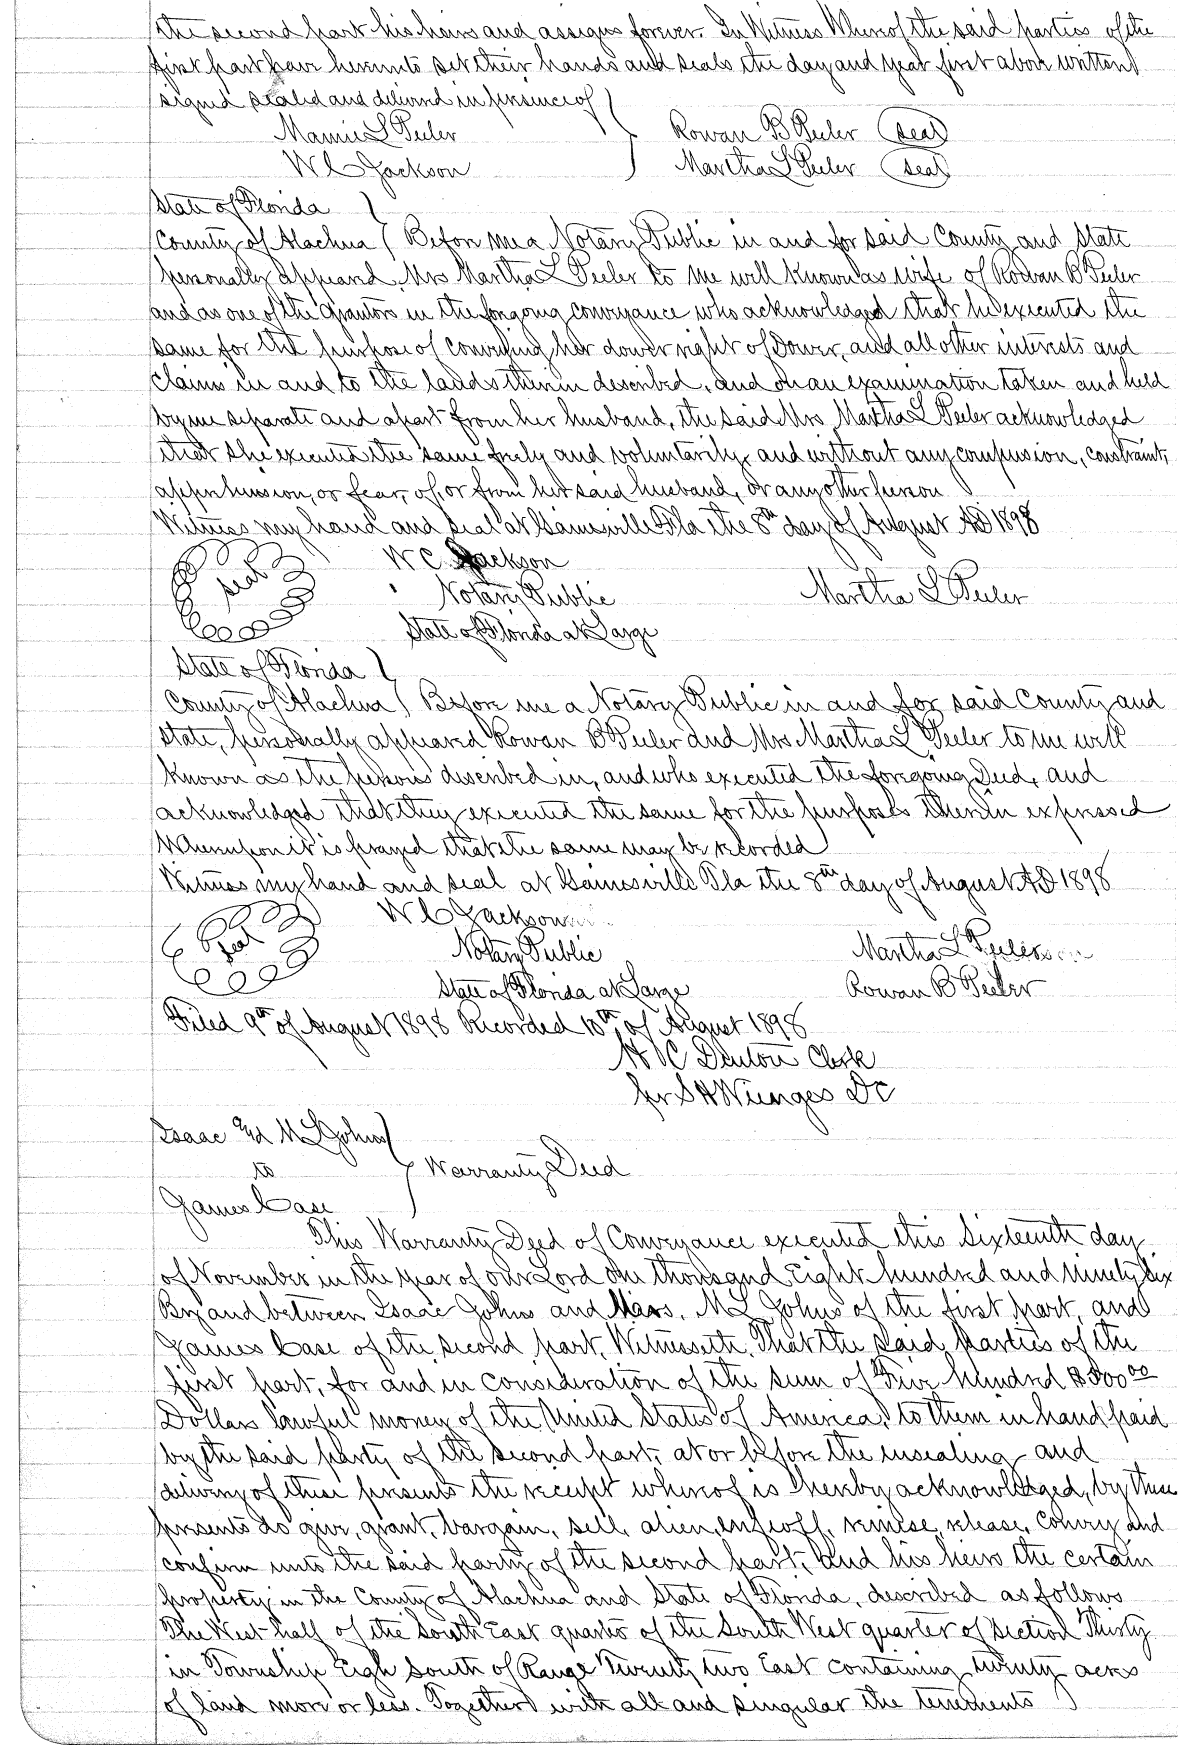 the second part his heirs and assigns forever. In Witness Whereof the said parties of the
first part have hereunto set their hands and seals the day and year first above written
signed sealed and delivered in presence of
Mamie L Peeler Rowan B Peeler (seal)
W C Jackson Martha L Peeler (seal)
State of Florida
County of Alachua Before me a Notary Public in and for said County and State
personally appeared Mrs Martha L Peeler to me well known as wife of Rowan B Peeler
and as one of the Grantors in the forgoing conveyance who acknowledged that he executed the
same for the purpose of conveying her dower right of Dower, and all other interests and
claims in and to the lands therein described, and on an examination taken and held
by me separate and apart from her husband, the said Mrs Martha L Peeler acknowledged
that she executed the same freely and voluntarily, and without any compusion, constraint,
apprehension, or fear, of, or from her said husband, or any other person
Witness my hand and seal at Gainesville Fla the 8th day of August AD 1898
seal W C Jackson
Notary Public Martha L Peeler
State of Florida at Large
State of Florida
County of Alachua Before me a Notary Public in and for said County and
State, personally appeared Rowan B Peeler and Mrs Martha L Peeler to me well
known as the persons described in, and who executed the foregoing Deed, and
acknowledged that they executed the same for the purposes therein expressed
Whereupon it is prayed that the same may be recorded
Witness my hand and seal at Gainesville Fla the 8th day of August AD 1898
Seal W C Jackson
Notary Public Martha L Peeler
State of Florida at Large Rowan B Peeler
Filed 9th of August 1898 Recorded 10th of August 1898
H C Denton Clerk
per S H Wienges DC
Isaac and M L Johns
to Warranty Deed
James Case
This Warranty Deed of Conveyance executed this Sixteenth day
of November in the year of our Lord one thousand Eight hundred and Ninety Six
By and between Isaac Johns and M L Johns of the first part, and
James Case of the second part, Witnesseth, That the said parties of the
first part, for and in consideration of the sum of Five hundred $500.00
Dollars lawful money of the United States of America, to them in hand paid
by the said party of the second part, at or before the insealing and
delivery of these presents the receipt whereof is hereby acknowledged, by these
presents do give, grant, bargain, sell, alien, enfeoff, remise, release, convey and
confirm unto the said party of the second part, and his heirs the certain
property in the County of Alachua and State of Florida, described as follows
The West half of the South East quarter of the South West quarter of section Thirty
in Township Eigh South of Range Twenty two East containing twenty acres
of land more or less. Together with all and singular the tenements